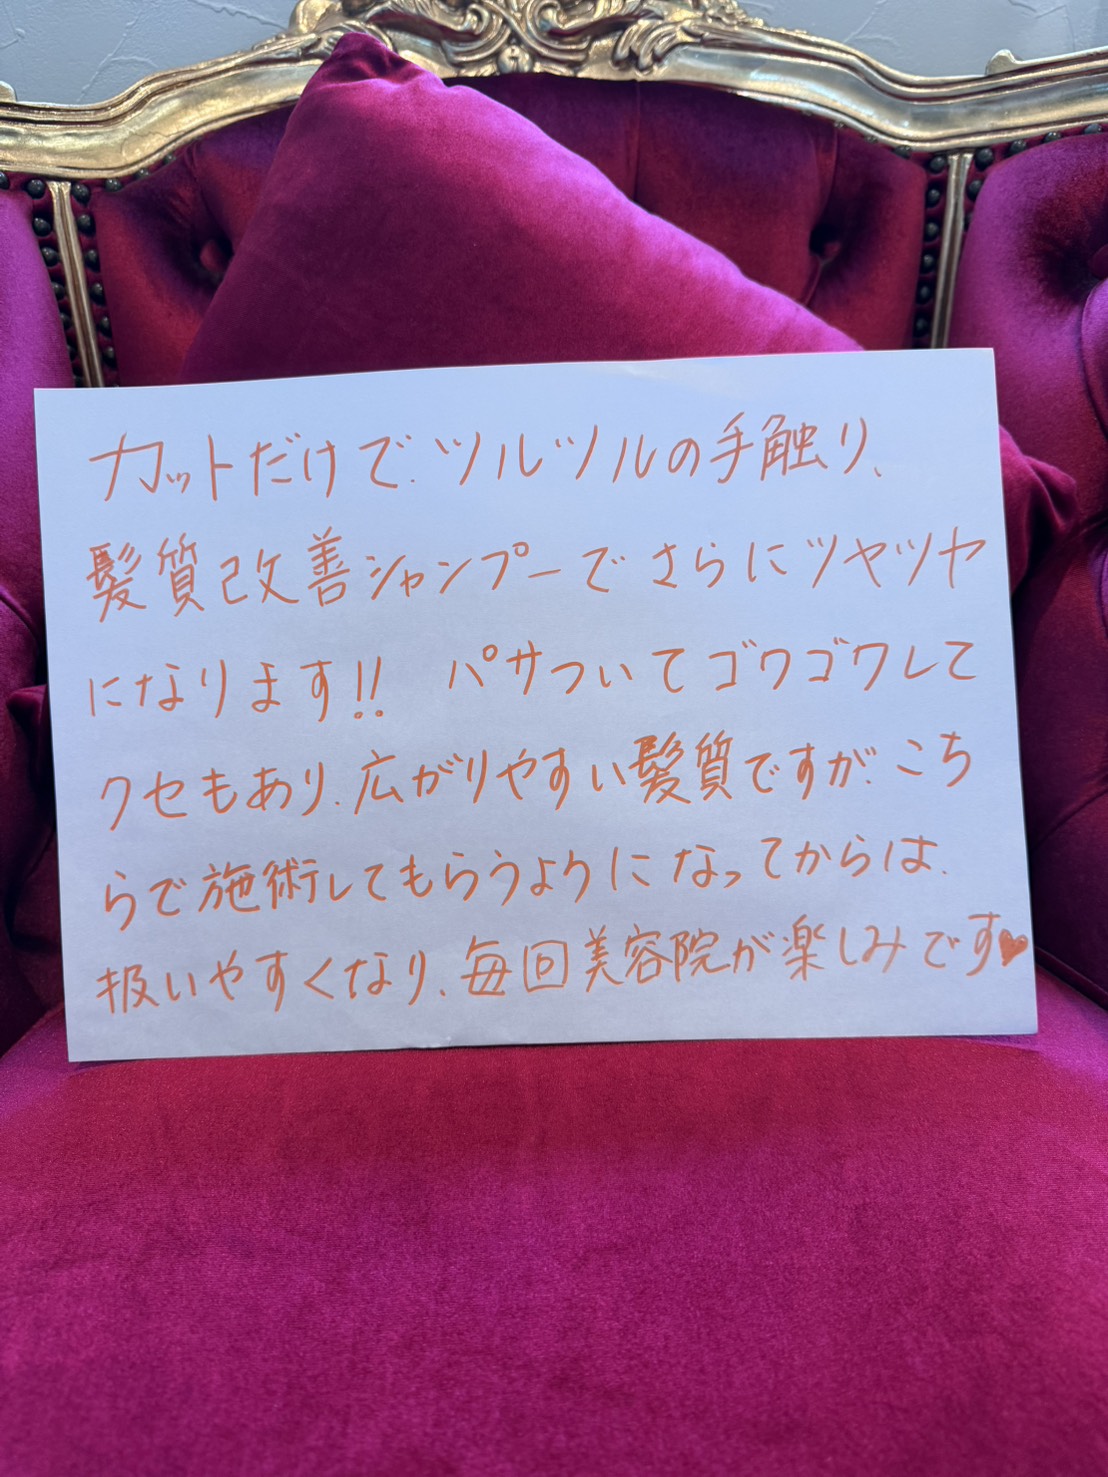 カットだけで、ツルツルの手触り、
髪質改善シャンプーでさらにツヤツヤ
になります!! パサついてゴワゴワして
クセもあり、広がりやすい髪質ですが、こち
らで施術してもらうようになってからは、
扱いやすくなり、毎回美容院が楽しみです♥